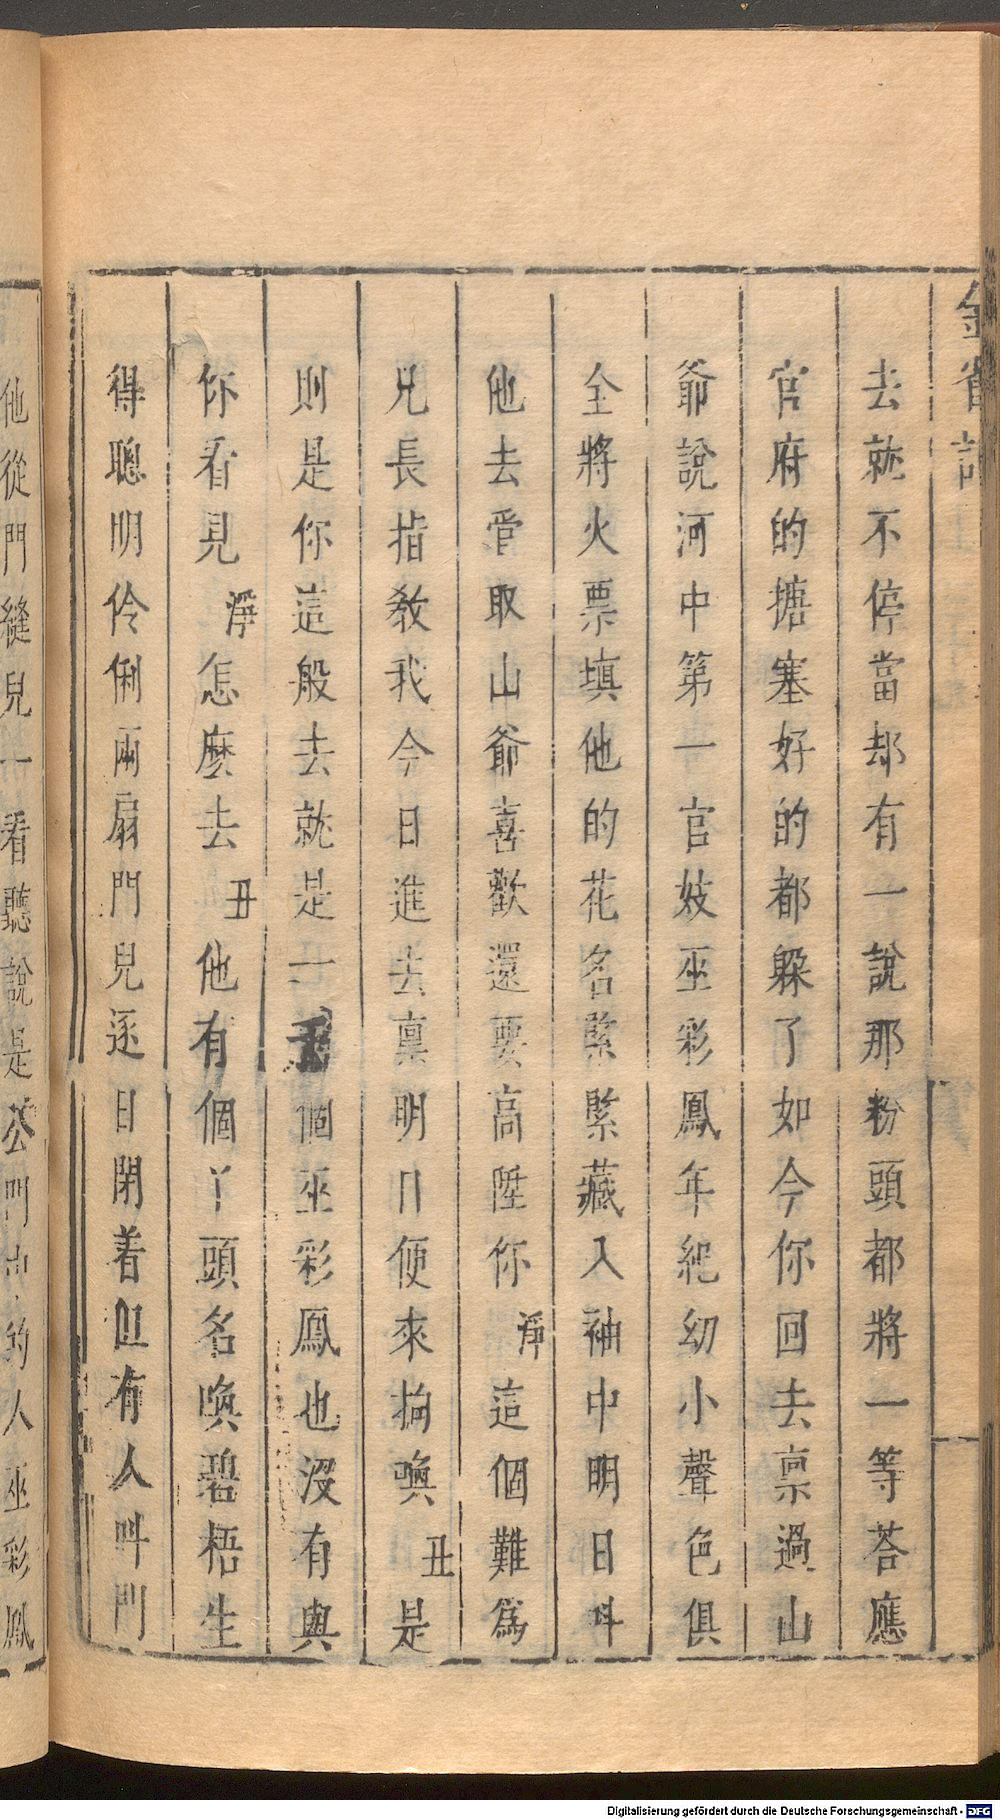 去就不停當却有一說那粉頭都將一等荅應
官府的搪塞好的都躲了如今你回去禀過山
爺說河中第一官妓巫彩鳳年紀幼小聲色俱
全將火票填他的花名緊緊藏入袖中明日呌
他去管取山爺喜歡還要高陞你淨這個難爲
兄長指教我今日進去禀明日便來拘喚丑是
則是你這般去就是一千個巫彩鳳也沒有與
你看見淨怎麽去丑他有個丫頭名喚碧梧生
得聰明伶俐兩扇門兒逐日閉着但有人呌門
他從門縫兒一看聽說是公門中的人巫彩鳳
Digitalisierung gefördert durch die Deutsche Forschungsgemeinschaft - DFG